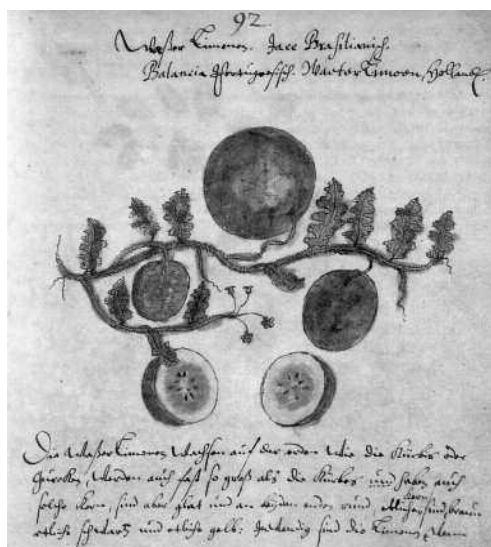 92.
Waßer Limonen. Jace Brasilianisch.
Balancia Portugesisch. Waeter Limoen, Hollandß.
Die Waßer Limonen Wachsen auf der erden Wie die Kürbis oder
Gurcken, Werden auch fast so groß als die Kürbes und haben auch
solche Kern, sind aber glat und an beyden enden rund, sind braun
etliche schwartz und etliche gelb: Inwendig sind die Limonen, Wenn